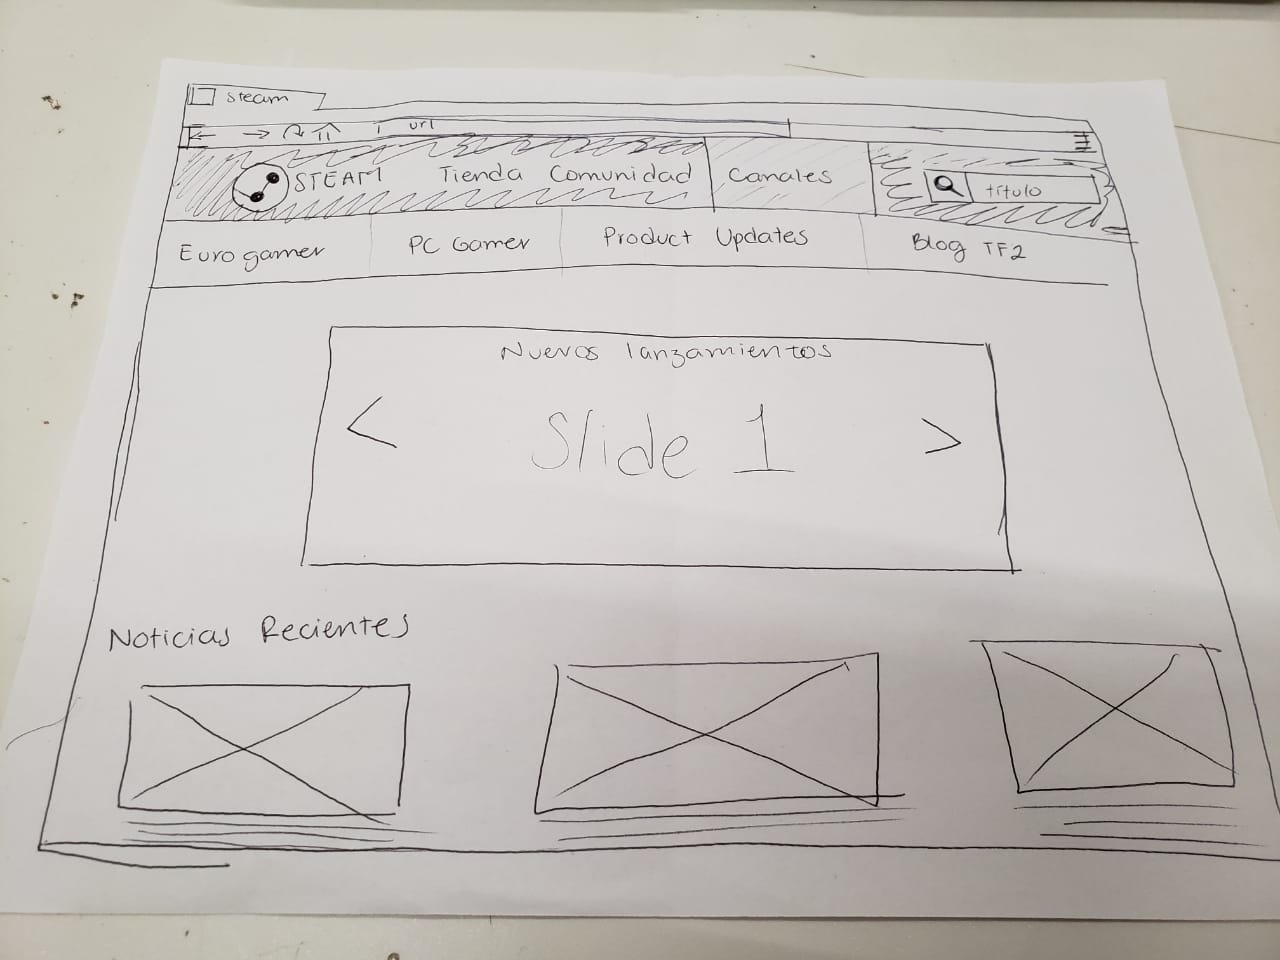 steam
url
STEAM Tienda Comunidad Canales título
Eurogamer PC Gamer Product Updates Blog TF2
Nuevos lanzamientos
< Slide 1 >
Noticias Recientes